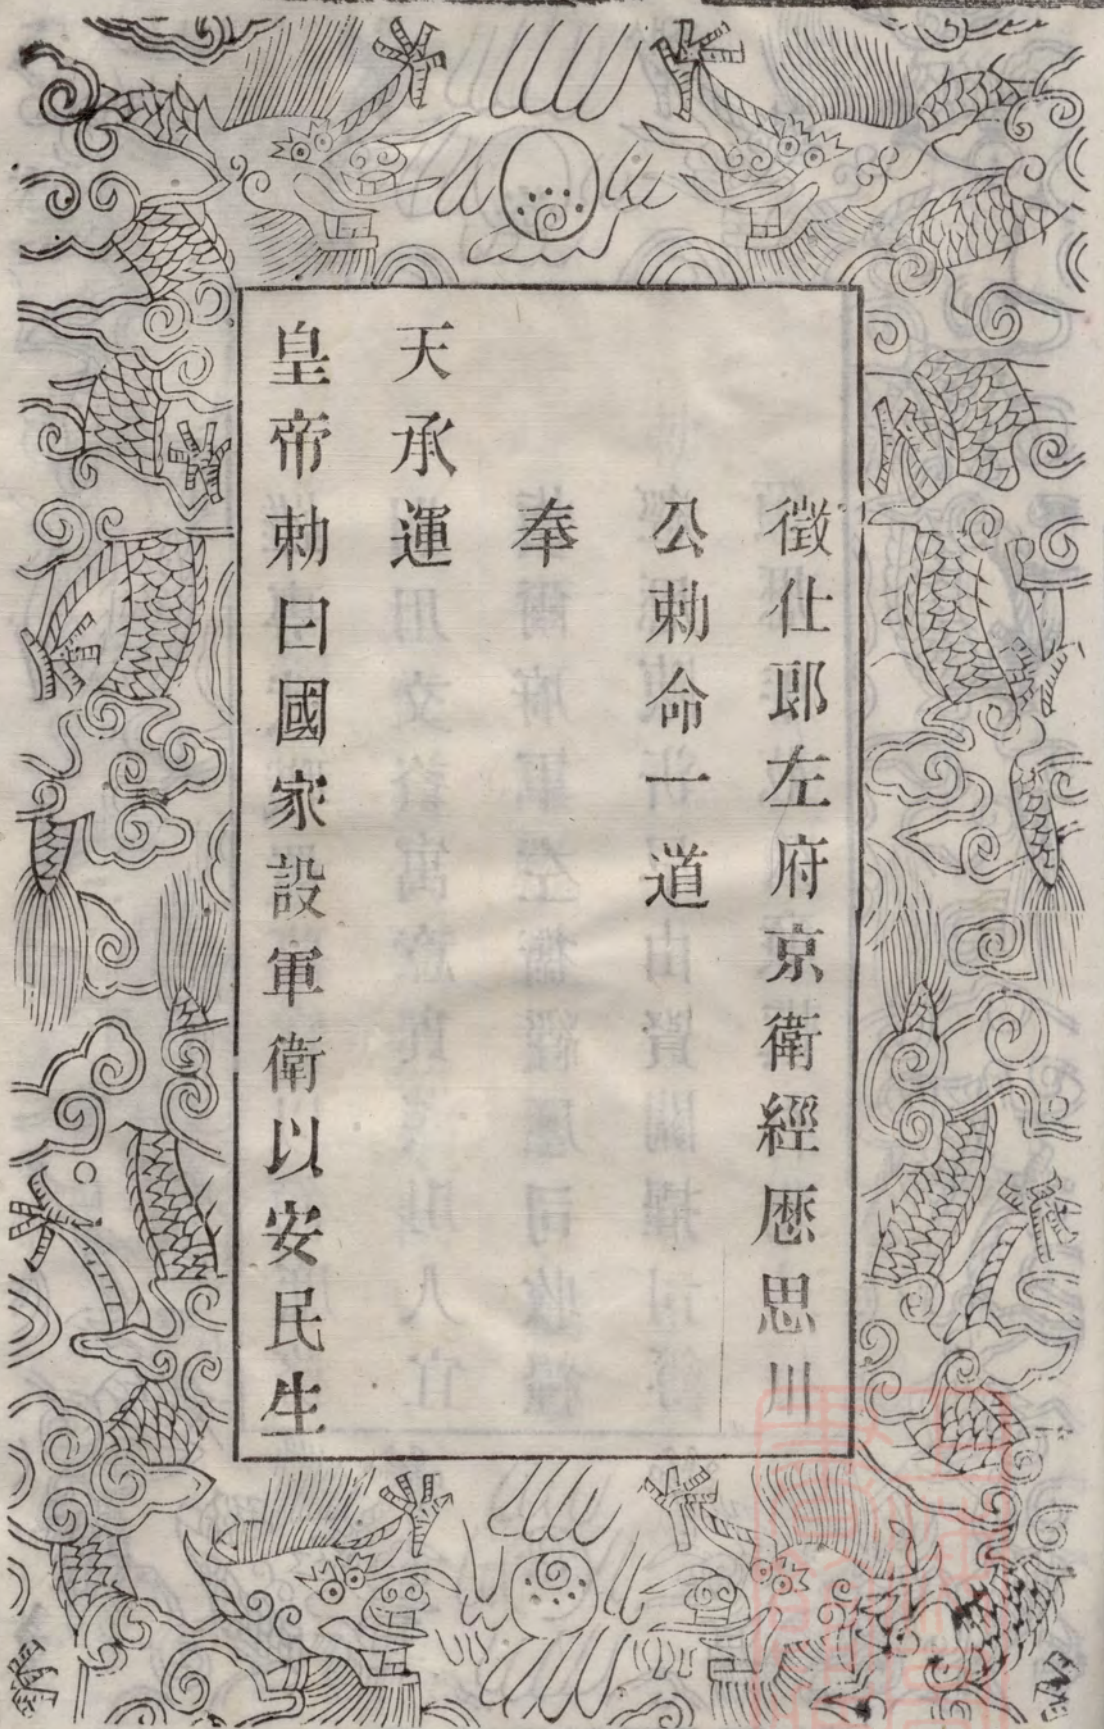 徵仕郎左府京衛經歷思川
公勅命一道
奉
天承運
皇帝勅曰國家設軍衛以安民生